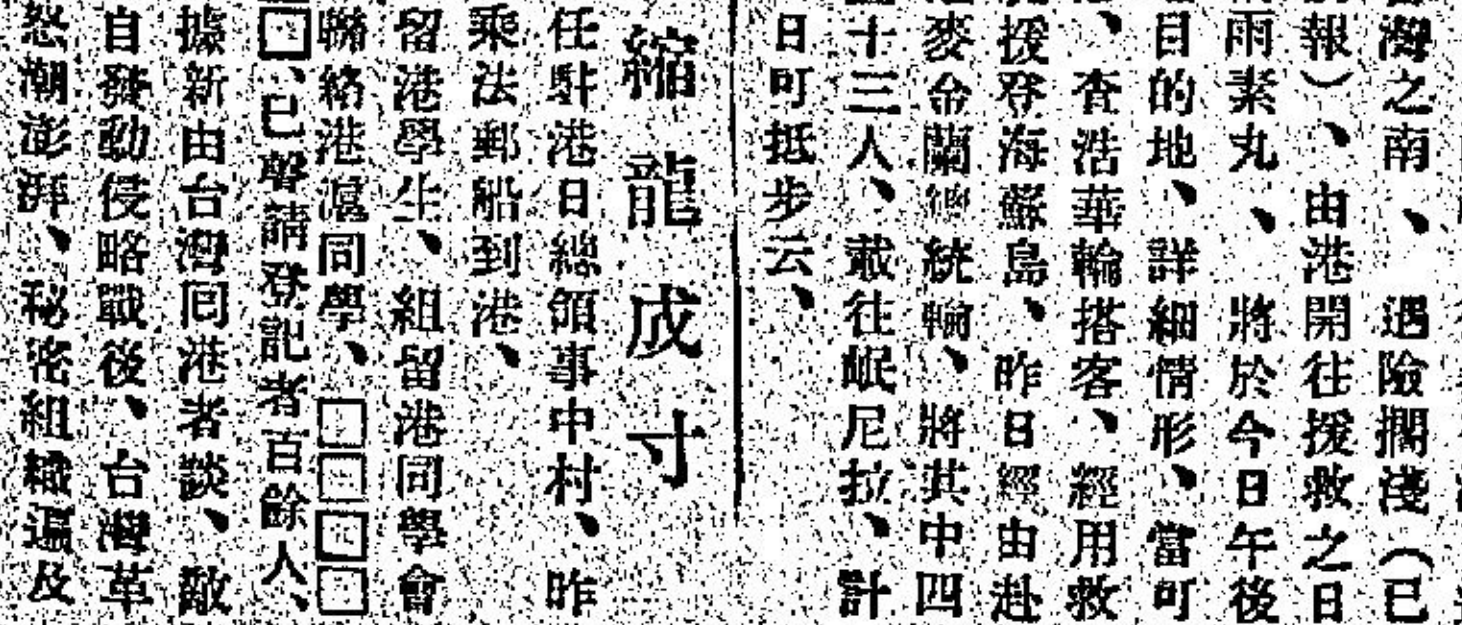 台灣之南、遇險擱淺（已
報）、由港開往援救之日
雨素丸、將於今日午後
目的地、詳細情形、當可
、查浩華輪搭客、經用救
援登海蘇島、昨日經由赴
麥金蘭總統輪、將其中四
十三人、載往岷尼拉、計
日可抵步云、
縮龍成寸
任駐港日總領事中村、昨
乘法郵船到港、
留港學生、組留港同學會
聯絡港滬同學、□□□□
□、已聲請登記者百餘人、
據新由台灣囘港者談、敵
自發動侵略戰後、台灣革
怒潮澎湃、秘密組織遍及